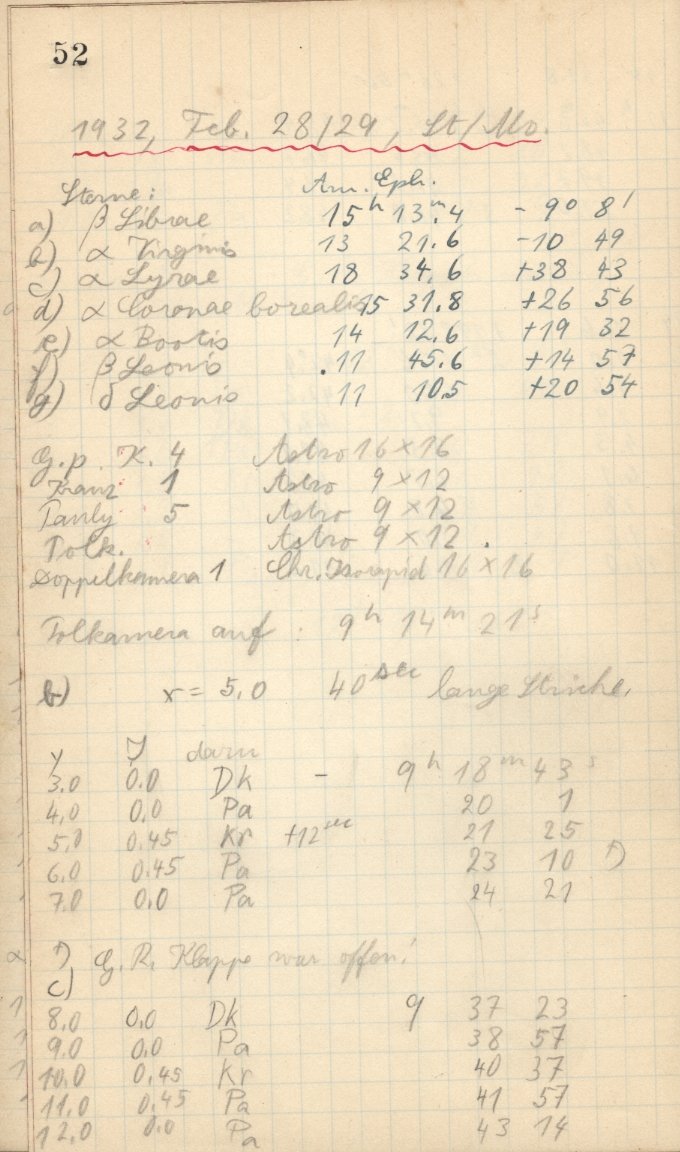 52
1932, Feb. 28/29, St/Mo.
Sterne: Am. Eph.
a) β Librae 15h 13m.4 - 9° 8'
b) α Virginis 13 21.6 -10 49
c) α Lyrae 18 34.6 +38 43
d) α Coronae borealis 15 31.8 +26 56
e) α Bootis 14 12.6 +19 32
f) β Leonis 11 45.6 +14 57
g) δ Leonis 11 10.5 +20 54
G.p. K. 4 Astro 16 × 16
Kranz 1 Astro 9 × 12
Pauly 5 Astro 9 × 12
Polk. Astro 9 × 12
Doppelkamera 1 Chr. Isorapid 16 × 16
Polkamera auf : 9h 14m 21s
b) x = 5,0 40sec lange Striche.
y J dazu
3.0 0.0 Dk - 9h 18m 43s
4,0 0.0 Pa 20 1
5,0 0.45 Kr +12sec 21 25
6,0 0.45 Pa 23 10
7,0 0,0 Pa 24 21
G. R. Klappe war offen!
c)
8,0 0,0 Dk 9 37 23
9.0 0.0 Pa 38 57
10.0 0.45 Kr 40 37
11.0 0.45 Pa 41 57
12,0 0.0 Pa 43 14